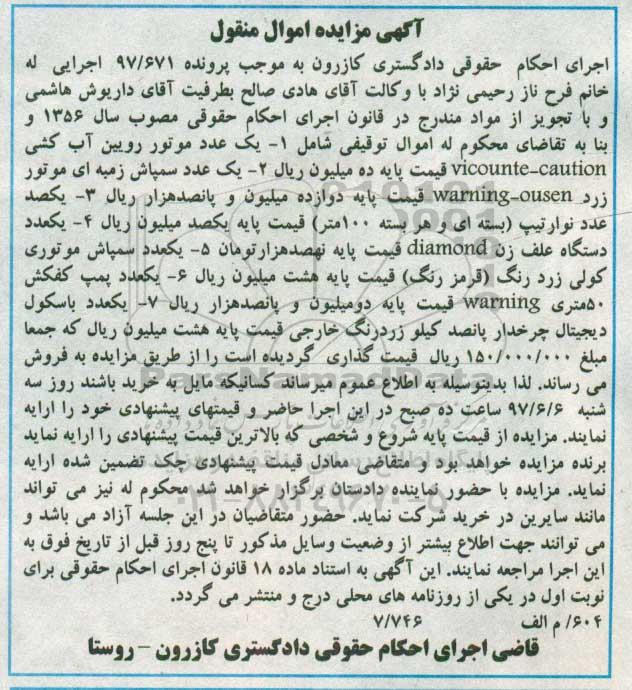 آگهی مزایده اموال منقول
اجرای احکام حقوقی دادگستری کازرون به موجب پرونده ۹۷/۶۷۱ اجرایی له
خانم فرح ناز رحیمی نژاد با وکالت آقای هادی صالح بطرفیت آقای داریوش هاشمی
و با تجویز از مواد مندرج در قانون اجرای احکام حقوقی مصوب سال ۱۳۵۶ و
بنا به تقاضای محکوم له اموال توقیفی شامل ۱- یک عدد موتور روبین آب کشی
vicounte-caution قیمت پایه ده میلیون ریال ۲- یک عدد سمپاش زمبه ای موتور
زرد warning-ousen قیمت پایه دوازده میلیون و پانصدهزار ریال ۳- یکصد
عدد نوارتیپ (بسته ای و هر بسته ۱۰۰متر) قیمت پایه یکصد میلیون ریال ۴- یکعدد
دستگاه علف زن diamond قیمت پایه نهصدهزارتومان ۵- یکعدد سمپاش موتوری
کولی زرد رنگ (قرمز رنگ) قیمت پایه هشت میلیون ریال ۶- یکعدد پمپ کفکش
۵۰متری warning قیمت پایه دومیلیون و پانصدهزار ریال ۷- یکعدد باسکول
دیجیتال چرخدار پانصد کیلو زردرنگ خارجی قیمت پایه هشت میلیون ریال که جمعا
مبلغ ۱۵۰/۰۰۰/۰۰۰ ریال قیمت گذاری گردیده است را از طریق مزایده به فروش
می رساند. لذا بدینوسیله به اطلاع عموم میرساند کسانیکه مایل به خرید باشند روز سه
شنبه ۹۷/۶/۶ ساعت ده صبح در این اجرا حاضر و قیمتهای پیشنهادی خود را ارایه
نمایند. مزایده از قیمت پایه شروع و شخصی که بالاترین قیمت پیشنهادی را ارایه نماید
برنده مزایده خواهد بود و متقاضی معادل قیمت پیشنهادی چک تضمین شده ارایه
نماید. مزایده با حضور نماینده دادستان برگزار خواهد شد محکوم له نیز می تواند
مانند سایرین در خرید شرکت نماید. حضور متقاضیان در این جلسه آزاد می باشد و
می توانند جهت اطلاع بیشتر از وضعیت وسایل مذکور تا پنج روز قبل از تاریخ فوق به
این اجرا مراجعه نمایند. این آگهی به استناد ماده ۱۸ قانون اجرای احکام حقوقی برای
نوبت اول در یکی از روزنامه های محلی درج و منتشر می گردد.
۶۰۴/ م الف ۷/۷۴۶
قاضی اجرای احکام حقوقی دادگستری کازرون - روستا
ParsNamadData